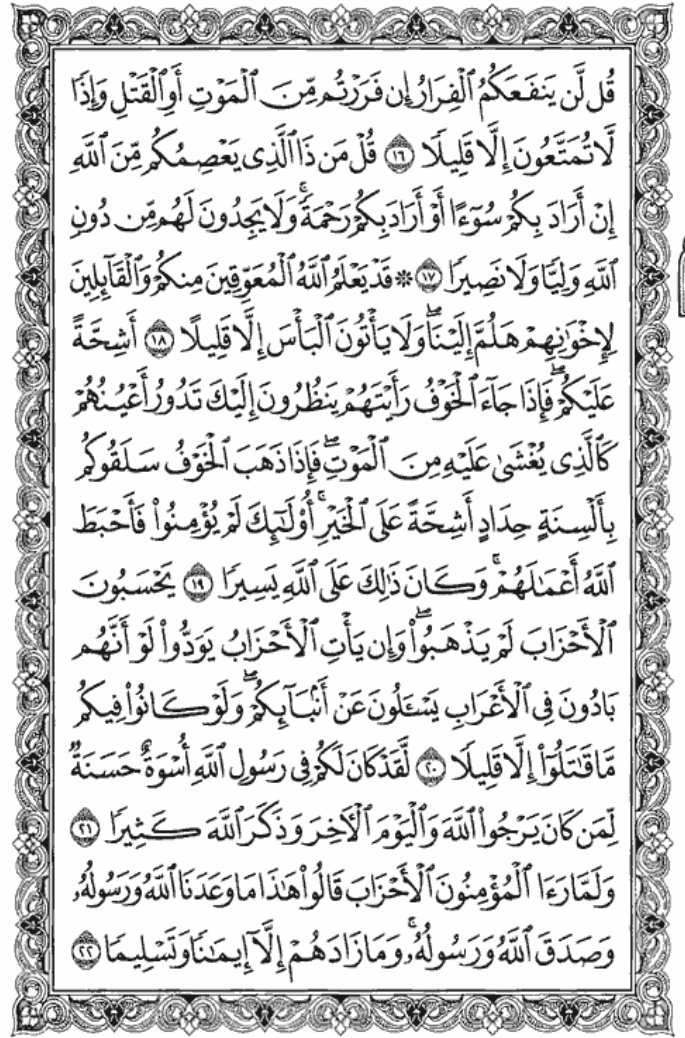 قُل لَّن يَنفَعَكُمُ ٱلْفِرَارُ إِن فَرَرْتُم مِّنَ ٱلْمَوْتِ أَوِ ٱلْقَتْلِ وَإِذًا
لَّا تُمَتَّعُونَ إِلَّا قَلِيلًا ١٦ قُلْ مَن ذَا ٱلَّذِى يَعْصِمُكُم مِّنَ ٱللَّهِ
إِنْ أَرَادَ بِكُمْ سُوٓءًا أَوْ أَرَادَ بِكُمْ رَحْمَةً ۚ وَلَا يَجِدُونَ لَهُم مِّن دُونِ
ٱللَّهِ وَلِيًّا وَلَا نَصِيرًا ١٧ ۞ قَدْ يَعْلَمُ ٱللَّهُ ٱلْمُعَوِّقِينَ مِنكُمْ وَٱلْقَآئِلِينَ
لِإِخْوَٰنِهِمْ هَلُمَّ إِلَيْنَا ۖ وَلَا يَأْتُونَ ٱلْبَأْسَ إِلَّا قَلِيلًا ١٨ أَشِحَّةً
عَلَيْكُمْ ۖ فَإِذَا جَآءَ ٱلْخَوْفُ رَأَيْتَهُمْ يَنظُرُونَ إِلَيْكَ تَدُورُ أَعْيُنُهُمْ
كَٱلَّذِى يُغْشَىٰ عَلَيْهِ مِنَ ٱلْمَوْتِ ۖ فَإِذَا ذَهَبَ ٱلْخَوْفُ سَلَقُوكُم
بِأَلْسِنَةٍ حِدَادٍ أَشِحَّةً عَلَى ٱلْخَيْرِ ۚ أُو۟لَٰٓئِكَ لَمْ يُؤْمِنُوا۟ فَأَحْبَطَ
ٱللَّهُ أَعْمَٰلَهُمْ ۚ وَكَانَ ذَٰلِكَ عَلَى ٱللَّهِ يَسِيرًا ١٩ يَحْسَبُونَ
ٱلْأَحْزَابَ لَمْ يَذْهَبُوا۟ ۖ وَإِن يَأْتِ ٱلْأَحْزَابُ يَوَدُّوا۟ لَوْ أَنَّهُم
بَادُونَ فِى ٱلْأَعْرَابِ يَسْـَٔلُونَ عَنْ أَنۢبَآئِكُمْ ۖ وَلَوْ كَانُوا۟ فِيكُم
مَّا قَٰتَلُوٓا۟ إِلَّا قَلِيلًا ٢٠ لَّقَدْ كَانَ لَكُمْ فِى رَسُولِ ٱللَّهِ أُسْوَةٌ حَسَنَةٌ
لِّمَن كَانَ يَرْجُوا۟ ٱللَّهَ وَٱلْيَوْمَ ٱلْـَٔاخِرَ وَذَكَرَ ٱللَّهَ كَثِيرًا ٢١
وَلَمَّا رَءَا ٱلْمُؤْمِنُونَ ٱلْأَحْزَابَ قَالُوا۟ هَٰذَا مَا وَعَدَنَا ٱللَّهُ وَرَسُولُهُۥ
وَصَدَقَ ٱللَّهُ وَرَسُولُهُۥ ۚ وَمَا زَادَهُمْ إِلَّآ إِيمَٰنًا وَتَسْلِيمًا ٢٢